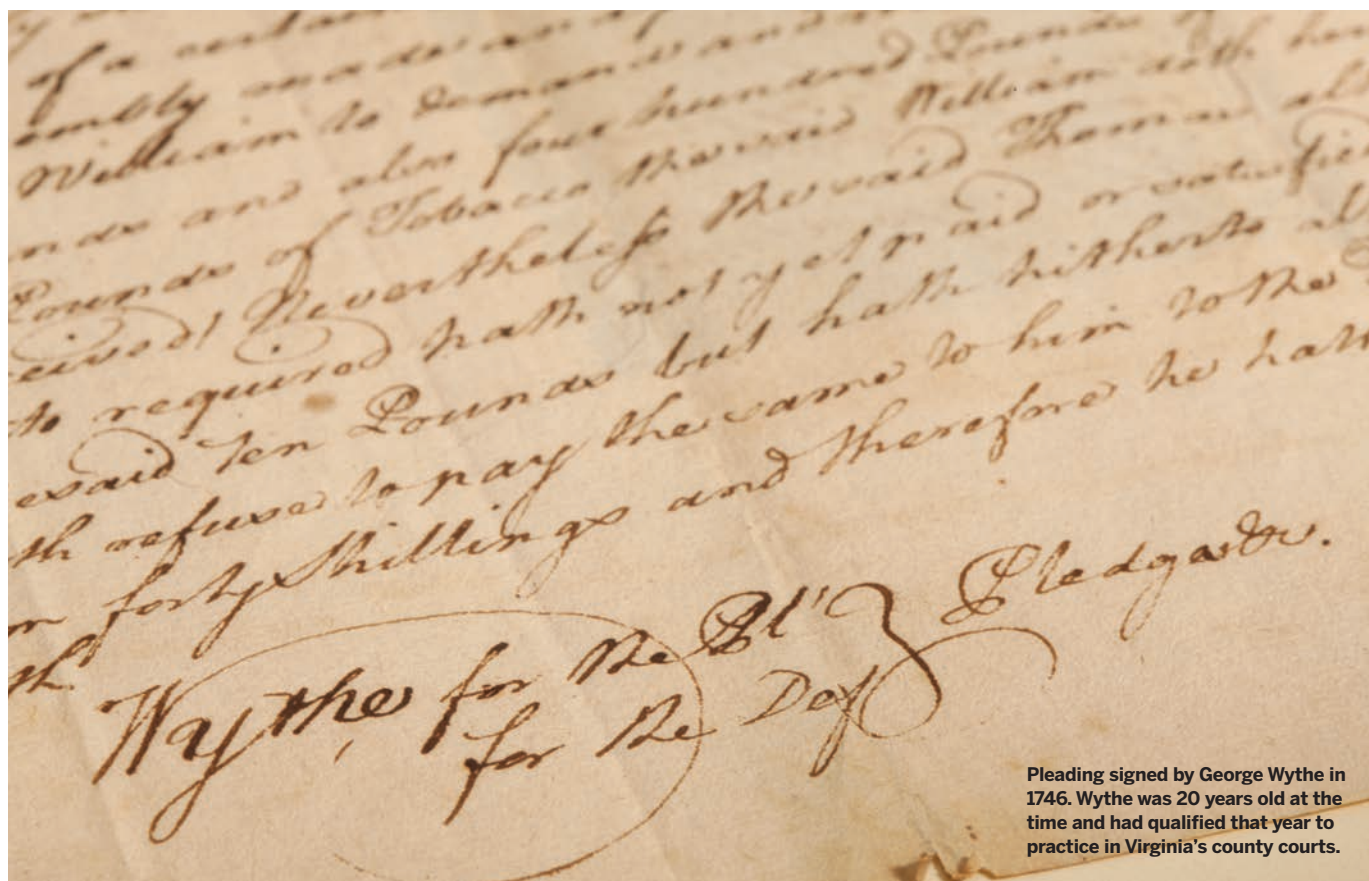 of a
embly made an
William to demand and
nds and also four hundred Pounds
Pounds of Tobacco the said William doth
ceived; Nevertheless the said Thomas
to required hath not yet paid or satisfie
esaid Ten Pounds but hath hitherto al
th refuse to pay the same to him to the
forty Shillings and therefore he hath
th
Waythe for the Pl' Pledgas &c.
for the Def
Pleading signed by George Wythe in
1746. Wythe was 20 years old at the
time and had qualified that year to
practice in Virginia's county courts.